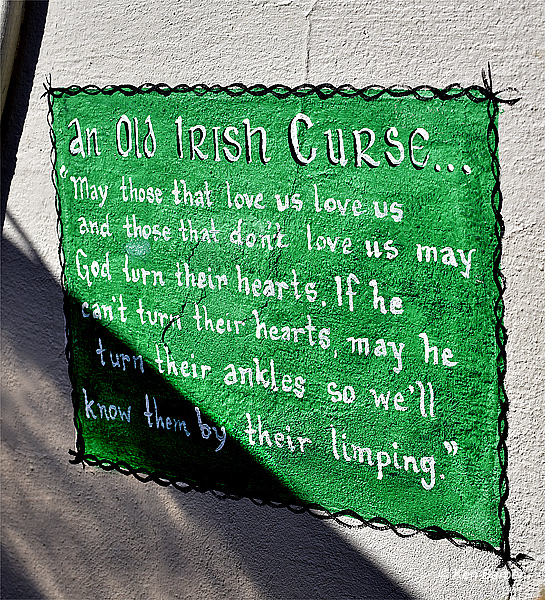 An Old Irish Curse...
"May those that love us love us
and those that don't love us may
God turn their hearts. If he
can't turn their hearts, may he
turn their ankles so we'll
know them by their limping."